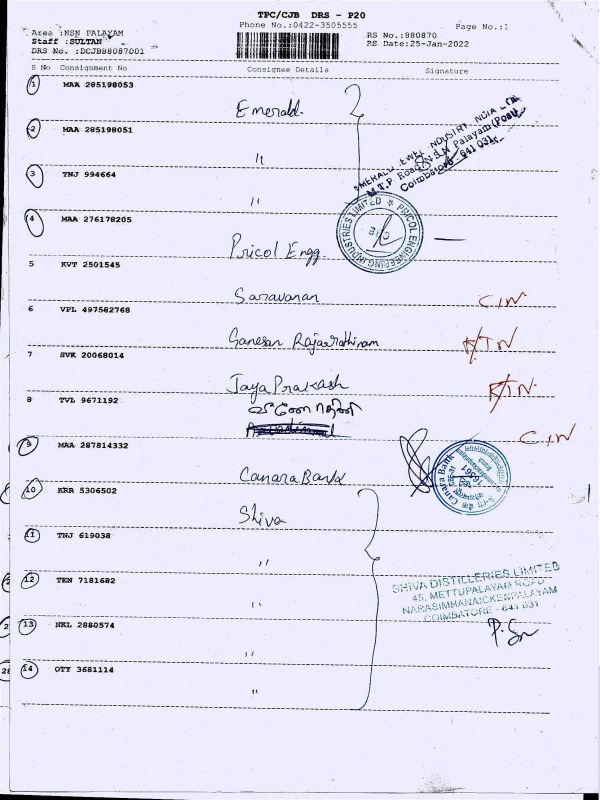 TPC/CJB DRS - P20
Phone No.:0422-3505555
Page No.:1
Area :NSN PALAYAM
Staff :SULTAN
DRS No. :DCJB88087001
RS No.:880870
RS Date:25-Jan-2022
S No Consignment No Consignee Details Signature
1 MAA 285198053
Emerald.
2 MAA 285198051
"
3 TNJ 994664
"
EMERALD JEWEL INDUSTRY INDIA LTD
M.T.P. Road, N.S.N. Palayam (Post)
Coimbatore - 641 031.
4 MAA 276178205
Pricol Engg.
PRICOL ENGINEERING INDUSTRIES LIMITED
CBE
5 KVT 2501545
Saravanan CIN
6 VPL 497582768
Ganesan Rajarathinam RTN
7 SVK 20068014
JayaPrakash RTN
8 TVL 9671192
CIN
9 MAA 287814332
Canara Bank
Canara Bank
10 KRR 5306502
Shiva
11 TNJ 619038
"
12 TEN 7181682
"
SHIVA DISTILLERIES LIMITED
45, METTUPALAYAM ROAD
NARASIMHANAICKENPALAYAM
COIMBATORE - 641 031
13 NKL 2880574
"
14 OTY 3681114
"